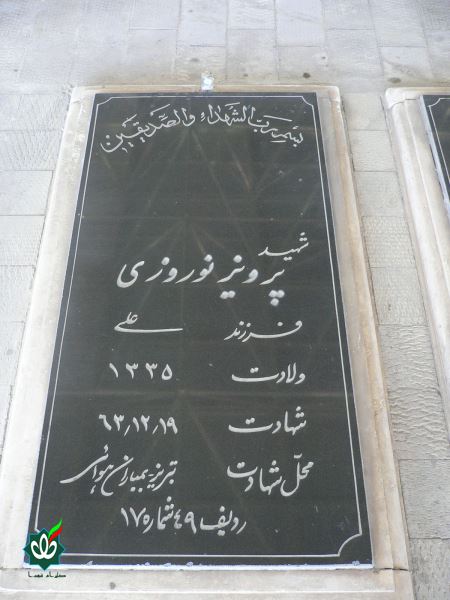 بسم رب الشهداء والصدیقین
شهید
پرویز نوروزی
فرزند علی
ولادت ۱۳۳۵
شهادت ۶۳٫۱۲٫۱۹
محل شهادت تبریز-بمباران هوائی
ردیف ۴۹ شماره ۱۷